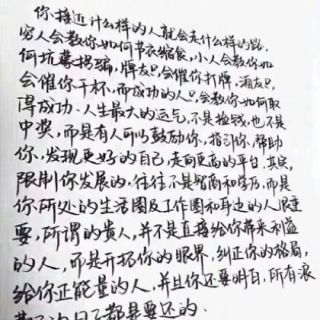 你接近什么样的人就会走什么样的路,
穷人会教你如何节衣缩食,小人会教你如
何坑蒙拐骗,牌友只会催你打牌,酒友只
会催你干杯,而成功的人只会教你如何取
得成功.人生最大的运气,不是捡钱,也不是
中奖,而是有人可以鼓励你,指引你,帮助
你,发现更好的自己,走向更高的平台,其实,
限制你发展的,往往不是智商和学历,而是
你所处的生活圈及工作圈和身边的人很重
要,所谓的贵人,并不是直接给你带来利益
的人,而是开拓你的眼界,纠正你的格局,
给你正能量的人,并且你还要明白,所有浪
都是要还的.